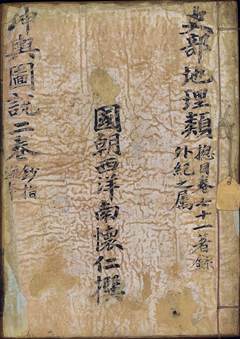 史部地理類
摠目卷七十一著録
外紀之屬
國朝西洋南懷仁撰
坤輿圖說二卷